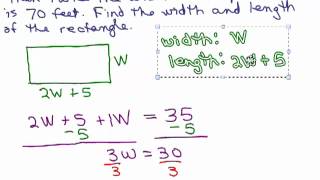 is 70 feet. Find the width and length
of the rectangle.
width: W
length: 2W + 5
W
2W + 5
2W + 5 + 1W = 35
-5 -5
3W = 30
3 3